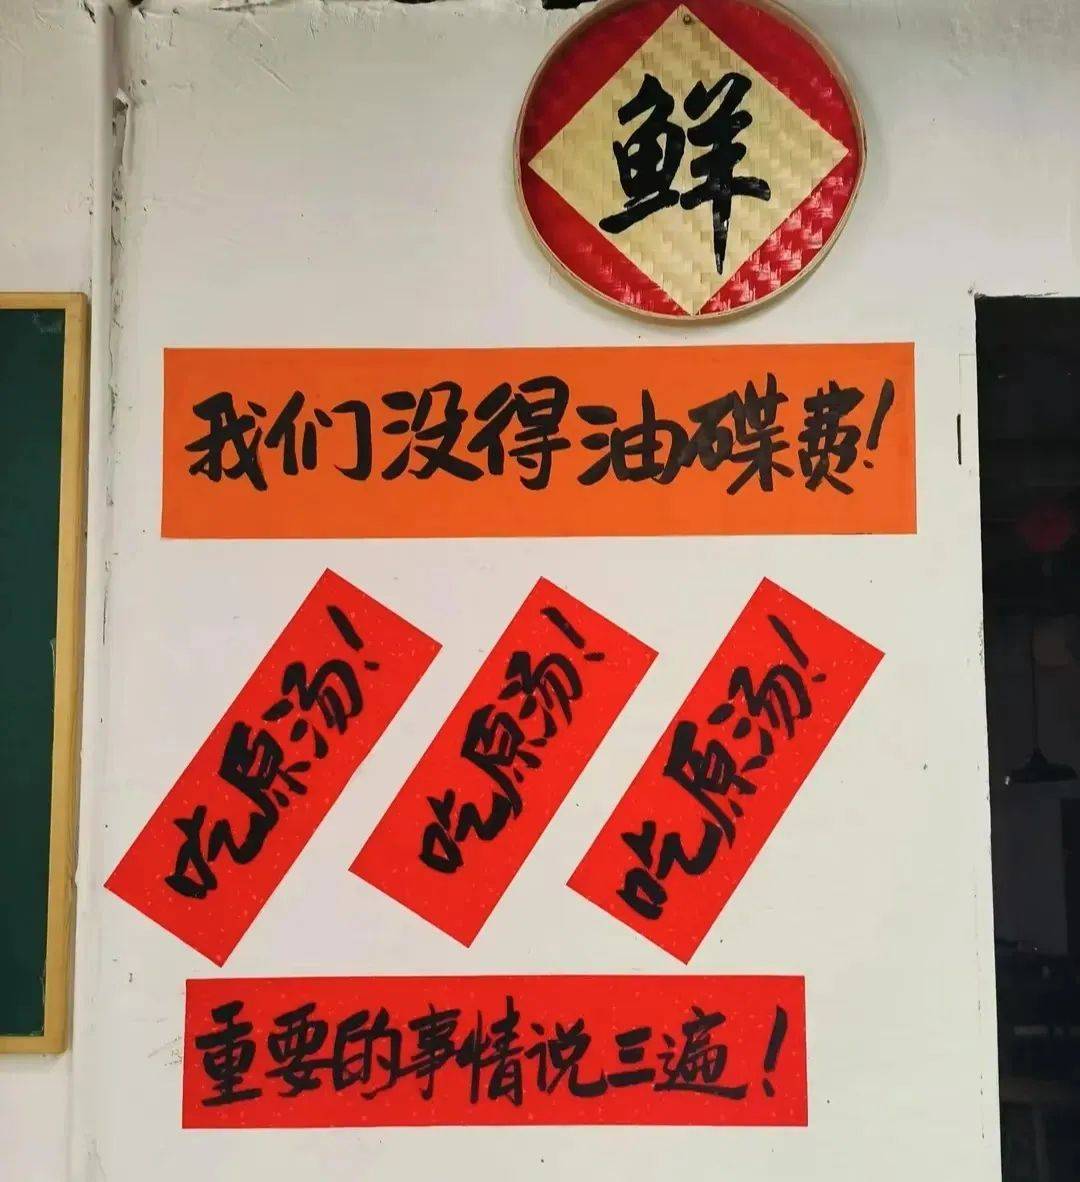 鲜
我们没得油碟费！
吃原汤！
吃原汤！
吃原汤！
重要的事情说三遍！